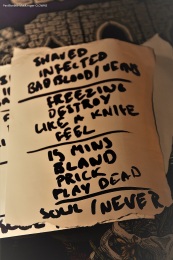 INFECTED
BAD BLOOD / VEINS
FREEZING
DESTROY
LIKE A KNIFE
FEEL
15 MINS
BLAND
PRICK
PLAY DEAD
SOUL / NEVER